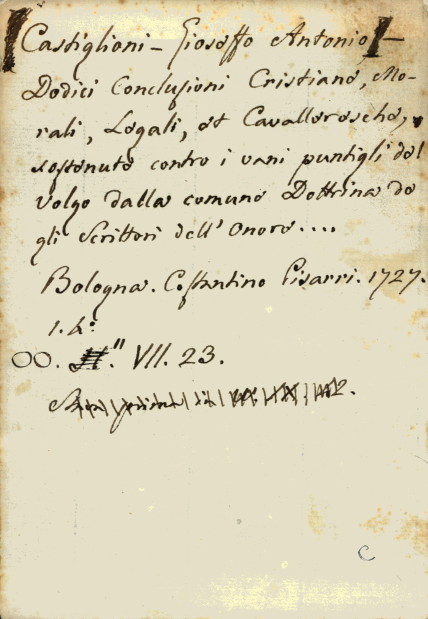 Castiglioni - Gioseffo Antonio, -
Dodici Conclusioni Cristiane, Mo-
rali, Legali, et Cavalleresche,
sostenute contro i vani puntigli del
volgo dalla comune Dottrina de
gli Scrittori dell' Onore....
Bologna. Costantino Pisarri. 1727.
1. 4.º
OO. " VII. 23.
C